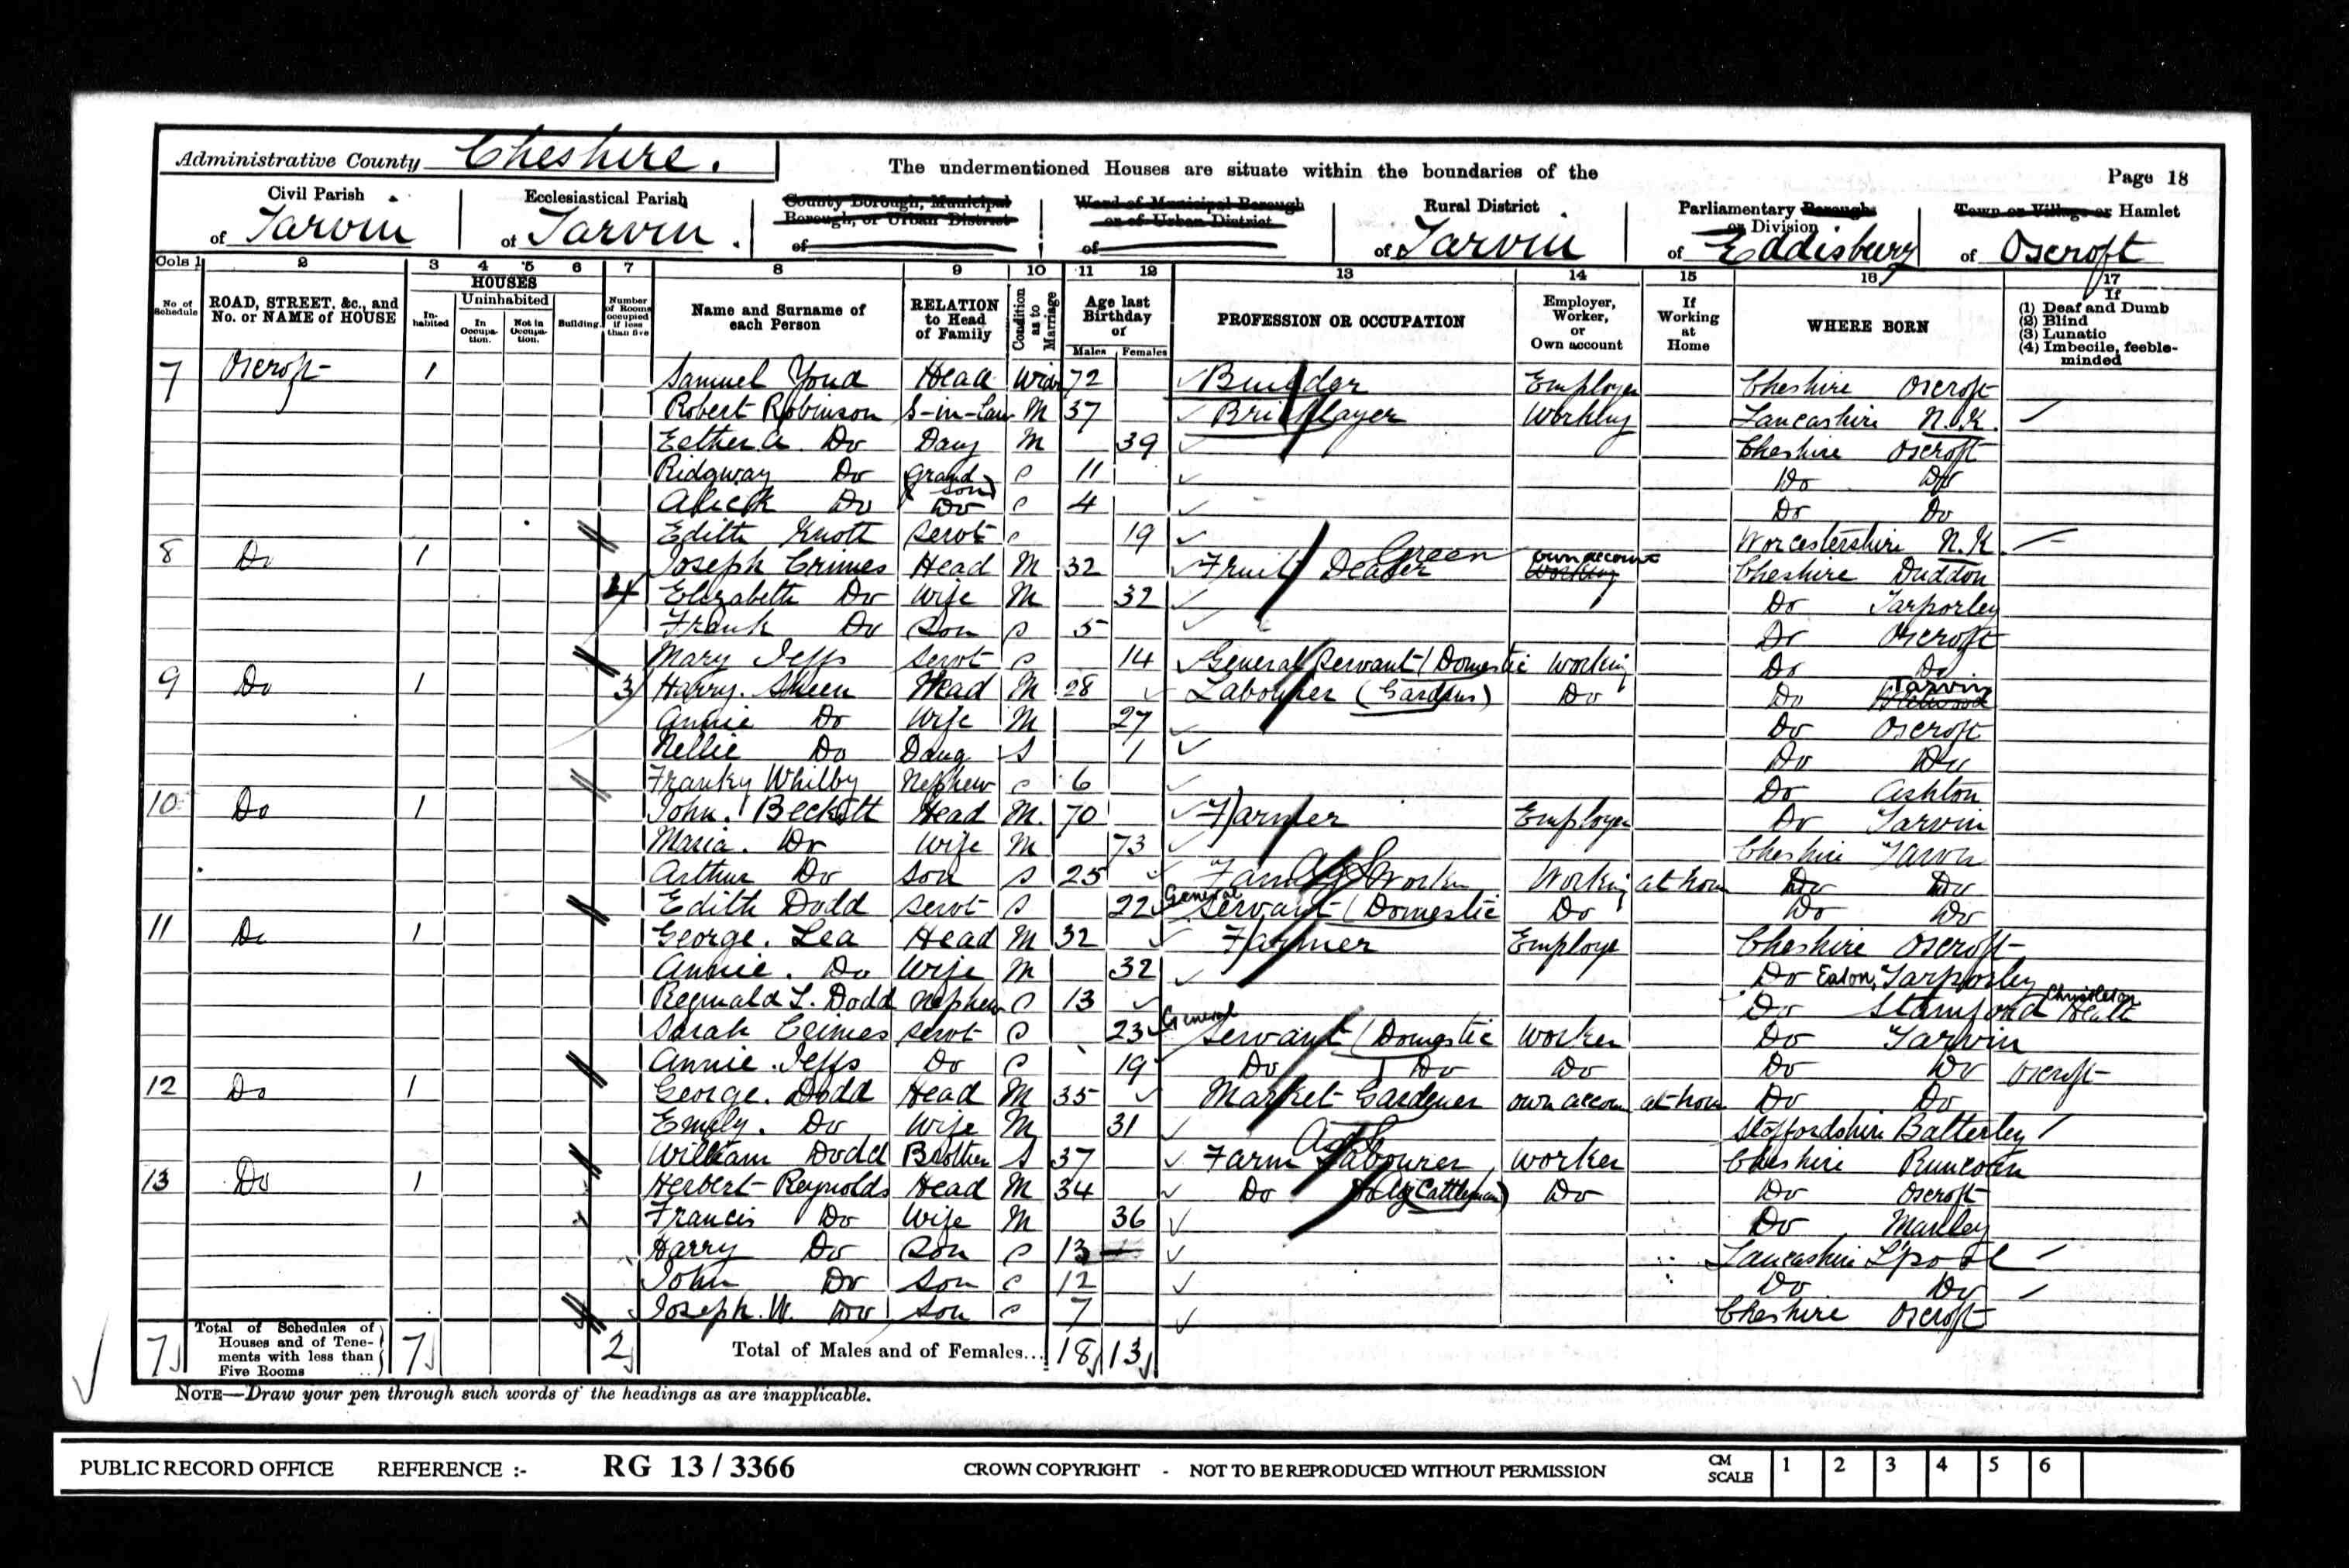 Administrative County Cheshire.
The undermentioned Houses are situate within the boundaries of the
Page 18
Civil Parish of Tarvin
Ecclesiastical Parish of Tarvin.
County Borough, Municipal Borough, or Urban District of
Ward of Municipal Borough or of Urban District of
Rural District of Tarvin
Parliamentary Borough or Division of Eddisbury
Town or Village or Hamlet of Oscroft
Cols 1 2 3 4 5 6 7 8 9 10 11 12 13 14 15 16 17
No. of Schedule
ROAD, STREET, &c., and No. or NAME of HOUSE
HOUSES
Inhabited
Uninhabited
In Occupation.
Not in Occupation.
Building.
Number of Rooms occupied if less than five
Name and Surname of each Person
RELATION to Head of Family
Condition as to Marriage
Age last Birthday of
Males Females
PROFESSION OR OCCUPATION
Employer, Worker, or Own account
If Working at Home
WHERE BORN
If
(1) Deaf and Dumb
(2) Blind
(3) Lunatic
(4) Imbecile, feeble-minded
7 Oscroft 1 Samuel Youd Head Widr 72 Builder Employer Cheshire Oscroft
Robert Robinson S-in-law M 37 Bricklayer Working Lancashire N.K.
Esther A. Do Daug M 39 Cheshire Oscroft
Ridgway Do Grand (son) S 11 Do Do
Alick Do Do S 4 Do Do
Edith Knott Servt S 19 Worcestershire N.K.
8 Do 1 Joseph Crimes Head M 32 Fruit Dealer Green own account Working Cheshire Duddon
4 Elizabeth Do Wife M 32 Do Tarporley
Frank Do Son S 5 Do Oscroft
Mary Jeffs Servt S 14 General Servant (Domestic Working Do Do
9 Do 1 3 Harry. Sheen Head M 28 Labourer (Gardens) Do Do Tarvin
Annie Do Wife M 27 Do Oscroft
Nellie Do Daug S 1 Do Do
Franky Whilby Nephew S 6 Do Ashton
10 Do 1 John. Beckett Head M. 70 Farmer Employer Do Tarvin
Maria. Do Wife M 73 Cheshire Tarvin
Arthur Do Son S 25 Farm Worker Working at home Do Do
Edith Dodd Servt S 22 General Servant (Domestic Do Do Do
11 Do 1 George. Lea Head M 32 Farmer Employe Cheshire Oscroft
Annie. Do Wife M 32 Do Eaton, Tarporley
Reginald L. Dodd Nephew S 13 Do Stamford Heath Christleton
Sarah Crimes Servt S 23 General Servant (Domestic Worker Do Tarvin
Annie. Jeffs Do S 19 Do Do Do Do Do Oscroft
12 Do 1 George. Dodd Head M 35 Market Gardener own accou at hom Do Do
Emily. Do Wife M 31 Staffordshire Batterley
William Dodd Brother S 37 Farm Labourer Ag Worker Cheshire Runcorn
13 Do 1 Herbert Reynolds Head M 34 Do Do (Cattleman) Do Do Oscroft
Francis Do Wife M 36 Do Manley
Harry Do Son S 13 Lancashire L'pool
John Do Son S 12 Do Do
Joseph. W. Do Son S 7 Cheshire Oscroft
7 Total of Schedules of Houses and of Tenements with less than Five Rooms 7 2 Total of Males and of Females... 18 13
NOTE—Draw your pen through such words of the headings as are inapplicable.
PUBLIC RECORD OFFICE REFERENCE :- RG 13 / 3366 CROWN COPYRIGHT - NOT TO BE REPRODUCED WITHOUT PERMISSION CM SCALE 1 2 3 4 5 6